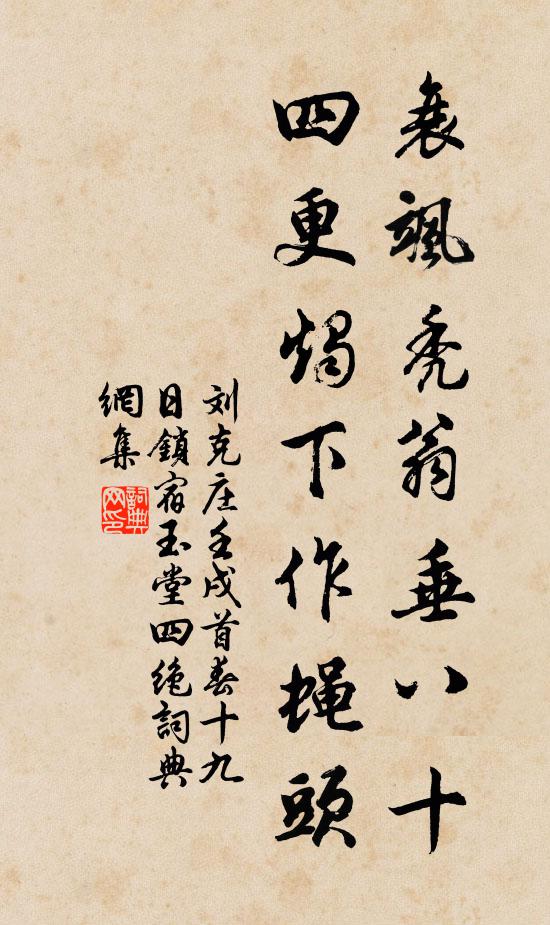 衰颯秃翁垂八十
四更燭下作蝇頭
刘克庄壬戌首春十九
日鎖宿玉堂四绝詞典
網集
詞典
网印